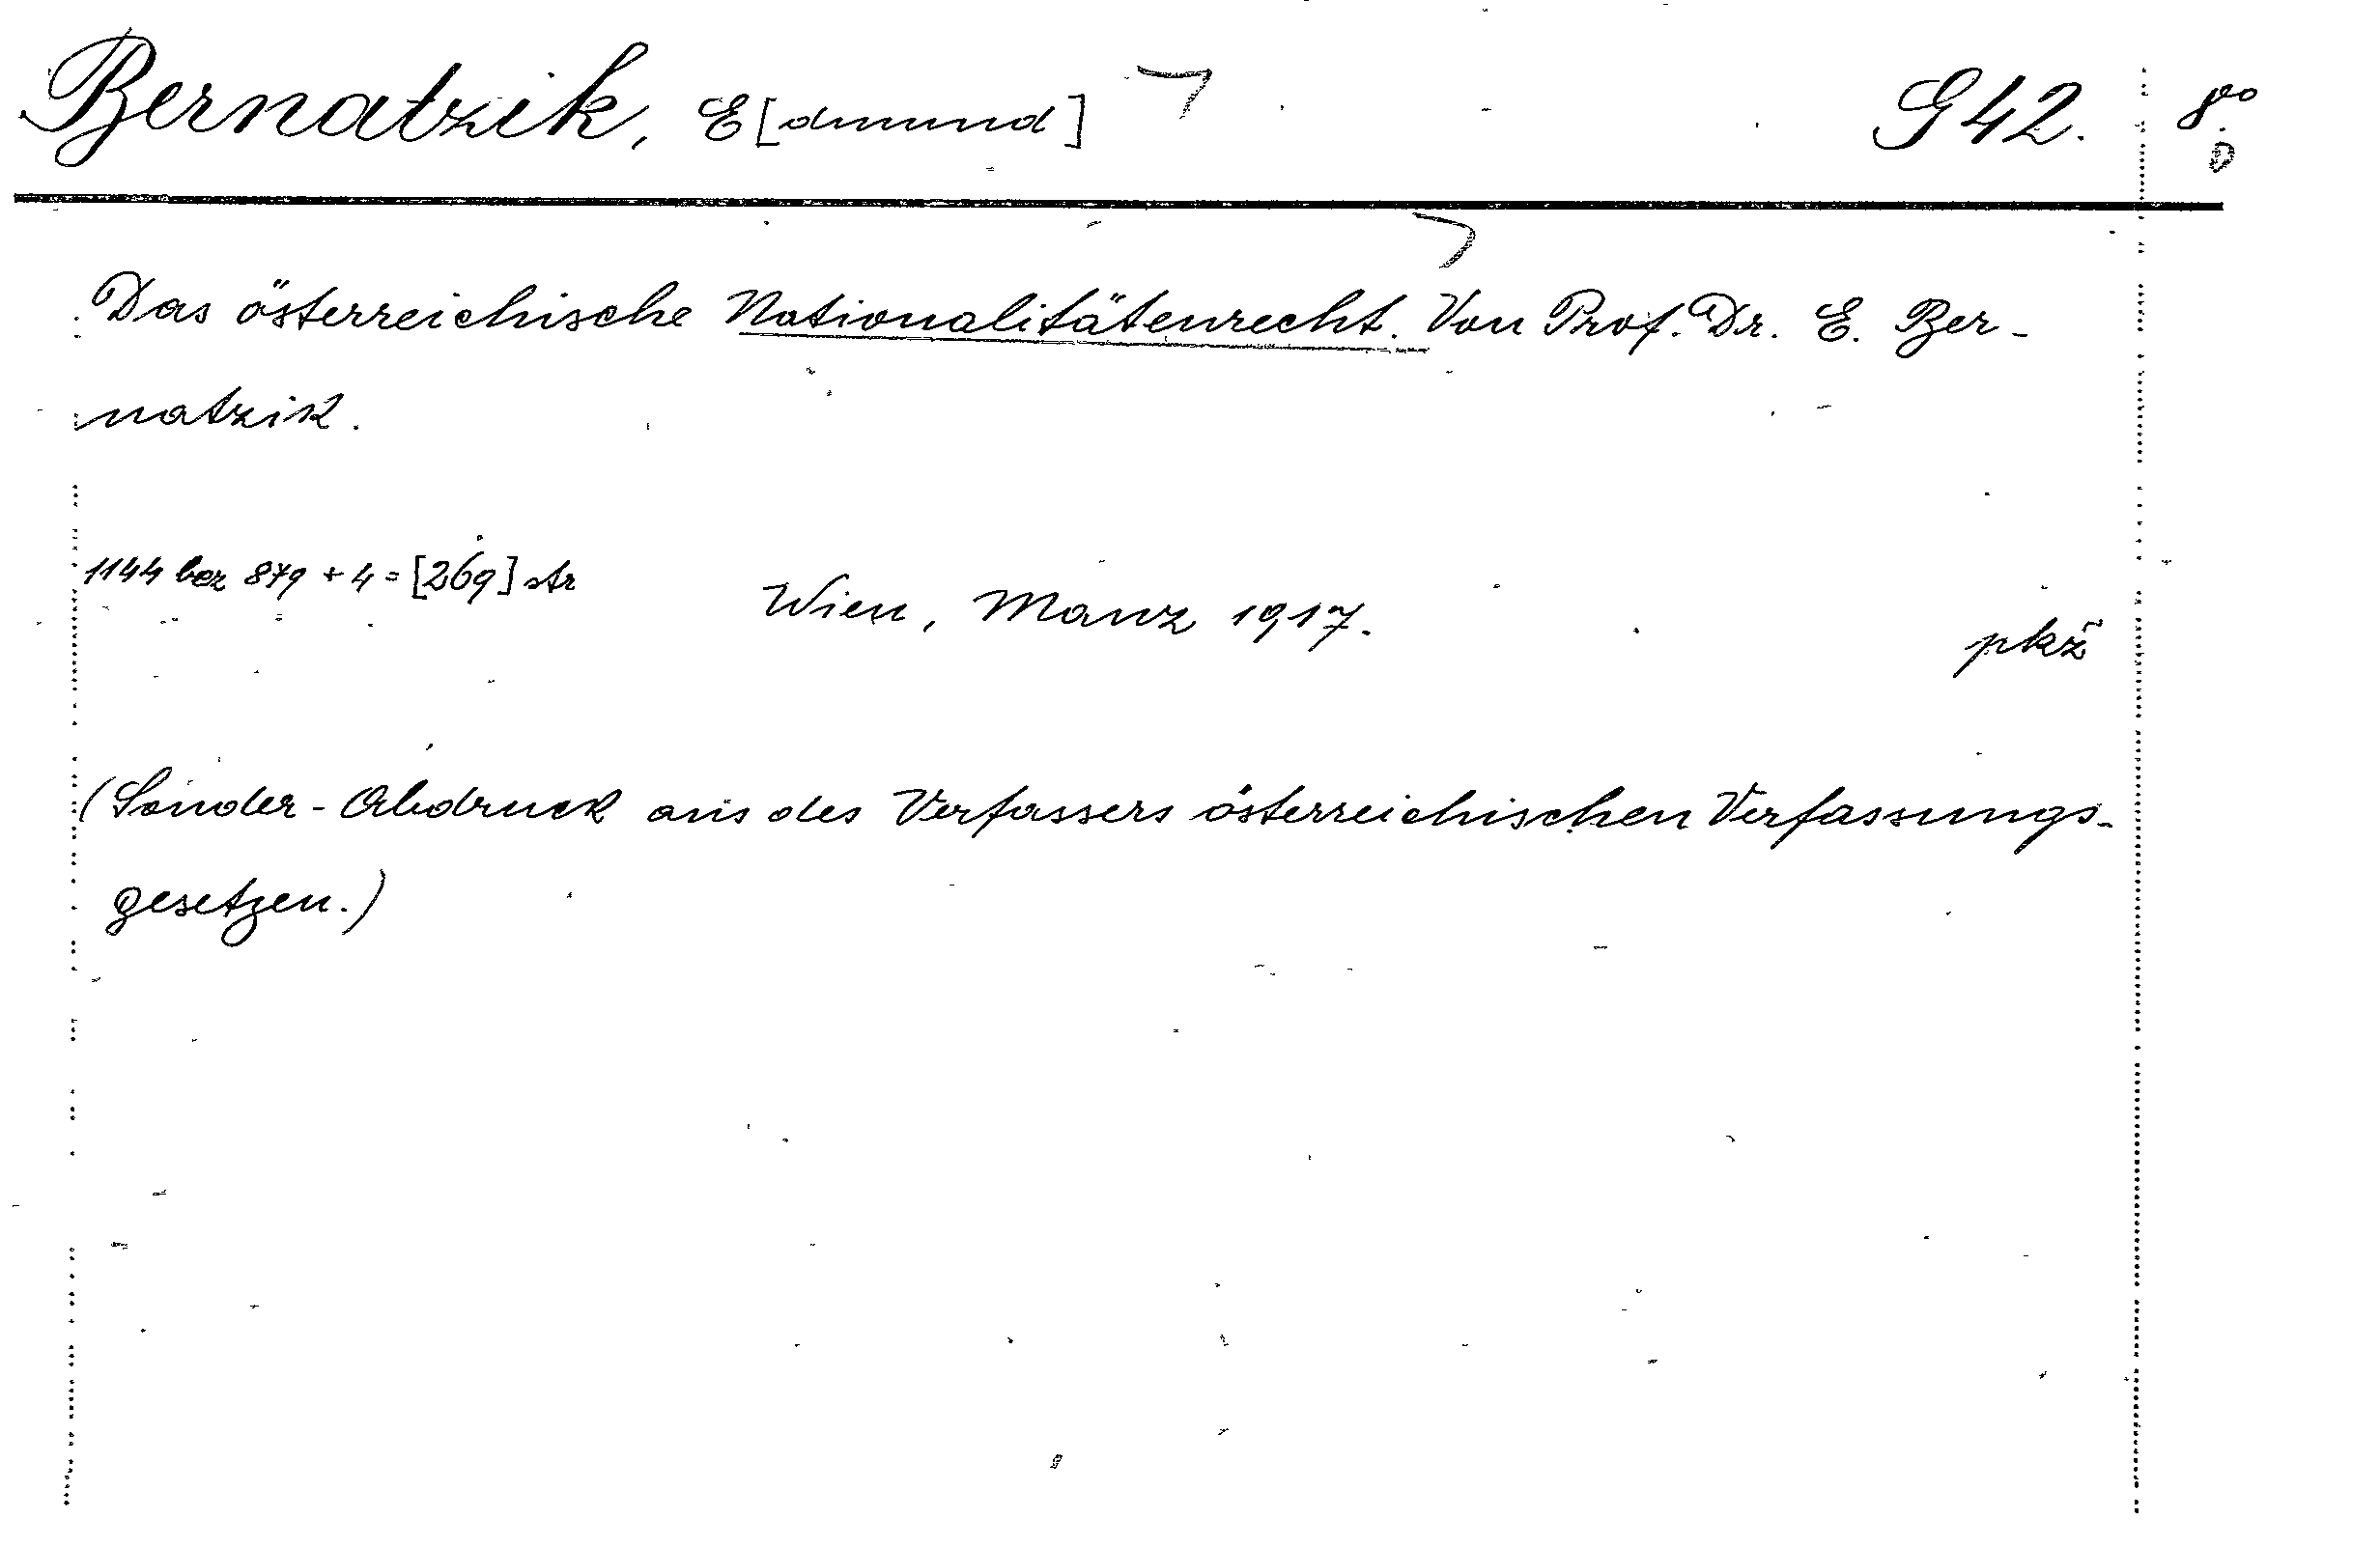 Bernatzik, E[dmund] G 42. 8°
D
Das österreichische Nationalitätenrecht. Von Prof. Dr. E. Ber-
natzik.
1144 bez 879 + 4 = [269] str
Wien, Manz 1917.
pkž
(Sonder-Abdruck aus des Verfassers österreichischen Verfassungs-
gesetzen.)